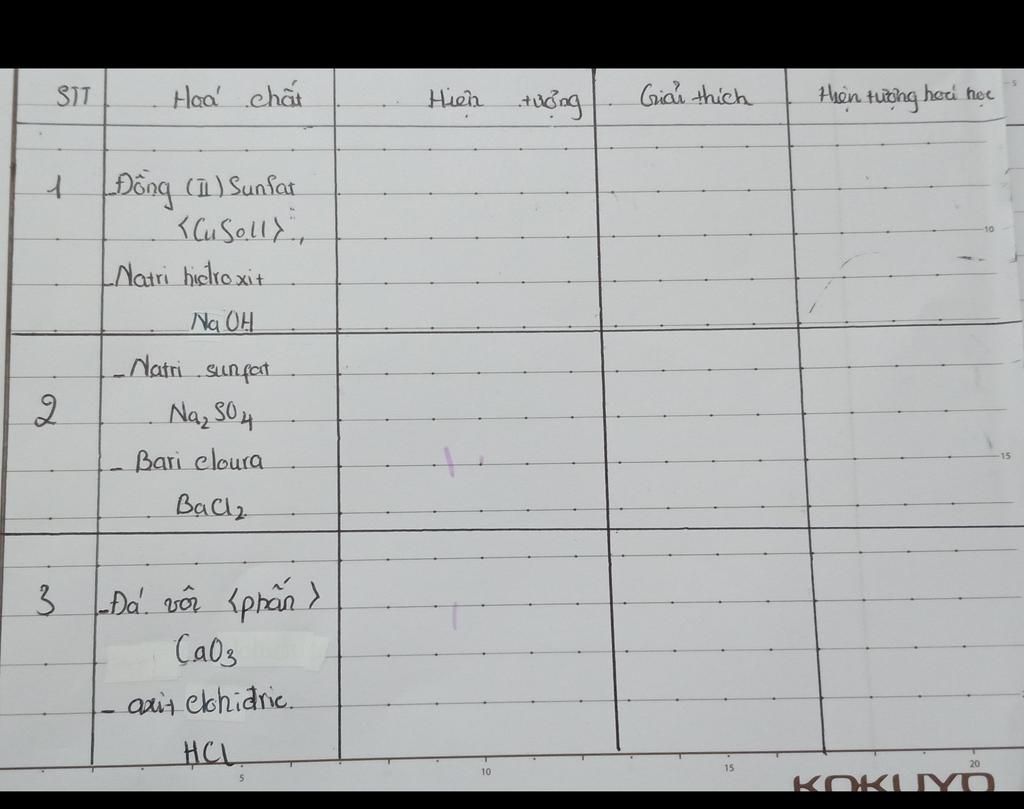 STT Hoá chất Hiện tượng Giải thích Hiện tượng hoá học
1 -Đồng (II) Sunfat
<CuSO4>
-Natri hidroxit
NaOH
- Natri sunfat
2 Na2SO4
- Bari cloura
BaCl2
3 -Đá vôi <phấn>
CaO3
- axit clohidric.
HCl
5
10
15
5
10
15
20
KOKUYO